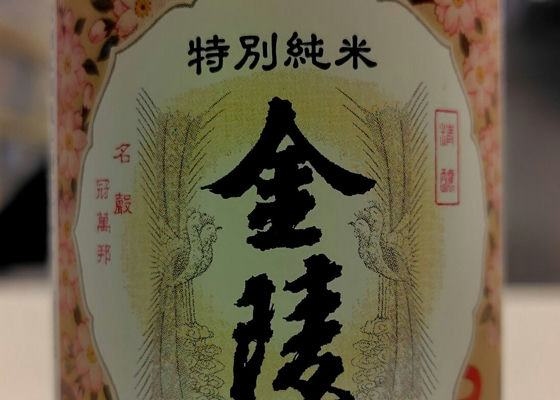 特別純米
金陵
精釀
名聲
冠萬邦